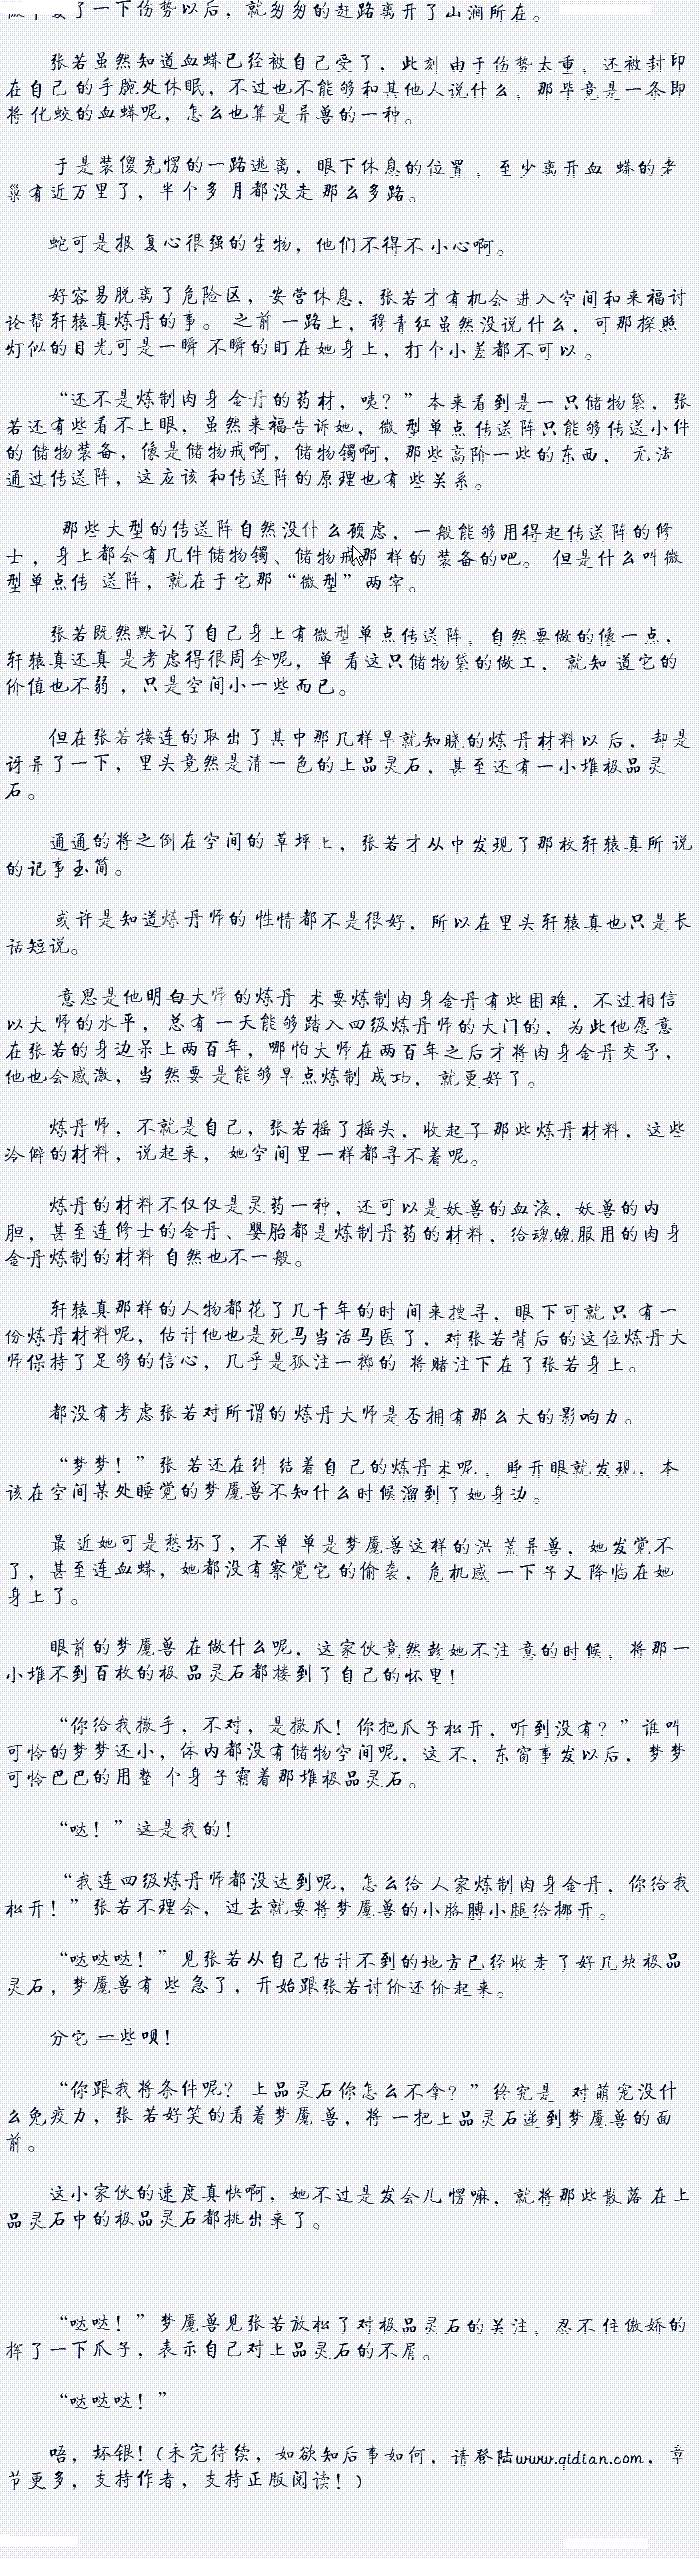 了一下伤势以后，就匆匆的赶路离开了山涧所在。
张若虽然知道血蟒已经被自己受了，此刻由于伤势太重，还被封印
在自己的手腕处休眠，不过也不能够和其他人说什么，那毕竟是一条即
将化蛟的血蟒呢，怎么也算是异兽的一种。
于是装傻充愣的一路逃离，眼下休息的位置，至少离开血蟒的老
巢有近万里了，半个多月都没走那么多路。
蛇可是报复心很强的生物，他们不得不小心啊。
好容易脱离了危险区，安营休息，张若才有机会进入空间和来福讨
论帮轩辕真炼丹的事。之前一路上，穆青红虽然没说什么，可那探照
灯似的目光可是一瞬不瞬的盯在她身上，打个小差都不可以。
“还不是炼制肉身金丹的药材，咦？”本来看到是一只储物袋，张
若还有些看不上眼，虽然来福告诉她，微型单点传送阵只能够传送小件
的储物装备，像是储物戒啊，储物镯啊，那些高阶一些的东西，无法
通过传送阵，这应该和传送阵的原理也有些关系。
那些大型的传送阵自然没什么顾虑，一般能够用得起传送阵的修
士，身上都会有几件储物镯、储物戒那样的装备的吧。但是什么叫微
型单点传送阵，就在于它那“微型”两字。
张若既然默认了自己身上有微型单点传送阵，自然要做的像一点，
轩辕真还真是考虑得很周全呢，单看这只储物袋的做工，就知道它的
价值也不弱，只是空间小一些而已。
但在张若接连的取出了其中那几样早就知晓的炼丹材料以后，却是
讶异了一下，里头竟然是清一色的上品灵石，甚至还有一小堆极品灵
石。
通通的将之倒在空间的草坪上，张若才从中发现了那枚轩辕真所说
的记事玉简。
或许是知道炼丹师的性情都不是很好，所以在里头轩辕真也只是长
话短说。
意思是他明白大师的炼丹术要炼制肉身金丹有些困难，不过相信
以大师的水平，总有一天能够踏入四级炼丹师的大门的，为此他愿意
在张若的身边呆上两百年，哪怕大师在两百年之后才将肉身金丹交予，
他也会感激，当然要是能够早点炼制成功，就更好了。
炼丹师，不就是自己，张若摇了摇头，收起了那些炼丹材料，这些
冷僻的材料，说起来，她空间里一样都寻不着呢。
炼丹的材料不仅仅是灵药一种，还可以是妖兽的血液，妖兽的内
胆，甚至连修士的金丹、婴胎都是炼制丹药的材料，给魂魄服用的肉身
金丹炼制的材料自然也不一般。
轩辕真那样的人物都花了几千年的时间来搜寻，眼下可就只有一
份炼丹材料呢，估计他也是死马当活马医了，对张若背后的这位炼丹大
师保持了足够的信心，几乎是孤注一掷的将赌注下在了张若身上。
都没有考虑张若对所谓的炼丹大师是否拥有那么大的影响力。
“梦梦！”张若还在纠结着自己的炼丹术呢，睁开眼就发现，本
该在空间某处睡觉的梦魇兽不知什么时候溜到了她身边。
最近她可是愁坏了，不单单是梦魇兽这样的洪荒异兽，她发觉不
了，甚至连血蟒，她都没有察觉它的偷袭，危机感一下子又降临在她
身上了。
眼前的梦魇兽在做什么呢，这家伙竟然趁她不注意的时候，将那一
小堆不到百枚的极品灵石都搂到了自己的怀里！
“你给我撒手，不对，是撒爪！你把爪子松开，听到没有？”谁叫
可怜的梦梦还小，体内都没有储物空间呢，这不，东窗事发以后，梦梦
可怜巴巴的用整个身子霸着那堆极品灵石。
“哒！”这是我的！
“我连四级炼丹师都没达到呢，怎么给人家炼制肉身金丹，你给我
松开！”张若不理会，过去就要将梦魇兽的小胳膊小腿给挪开。
“哒哒哒！”见张若从自己估计不到的地方已经收走了好几块极品
灵石，梦魇兽有些急了，开始跟张若讨价还价起来。
分它一些呗！
“你跟我将条件呢？上品灵石你怎么不拿？”终究是对萌宠没什
么免疫力，张若好笑的看着梦魇兽，将一把上品灵石递到梦魇兽的面
前。
这小家伙的速度真快啊，她不过是发会儿愣嘛，就将那些散落在上
品灵石中的极品灵石都挑出来了。
“哒哒！”梦魇兽见张若放松了对极品灵石的关注，忍不住傲娇的
挥了一下爪子，表示自己对上品灵石的不屑。
“哒哒哒！”
唔，坏银！（未完待续，如欲知后事如何，请登陆www.qidian.com，章
节更多，支持作者，支持正版阅读！）